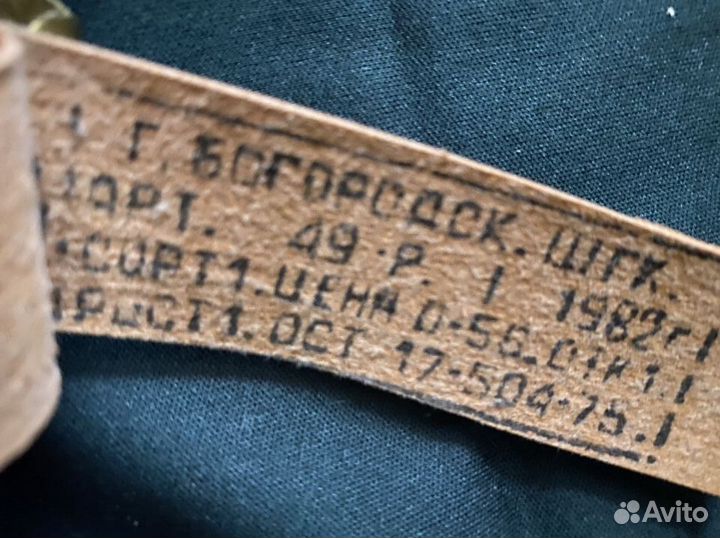 Г. БОГОРОДСК. ШГК.
АРТ. 49 Р. 1982 г
СОРТ 1. ЦЕНА 0-56
РОСТ 1. ОСТ 17-504-75.
Avito